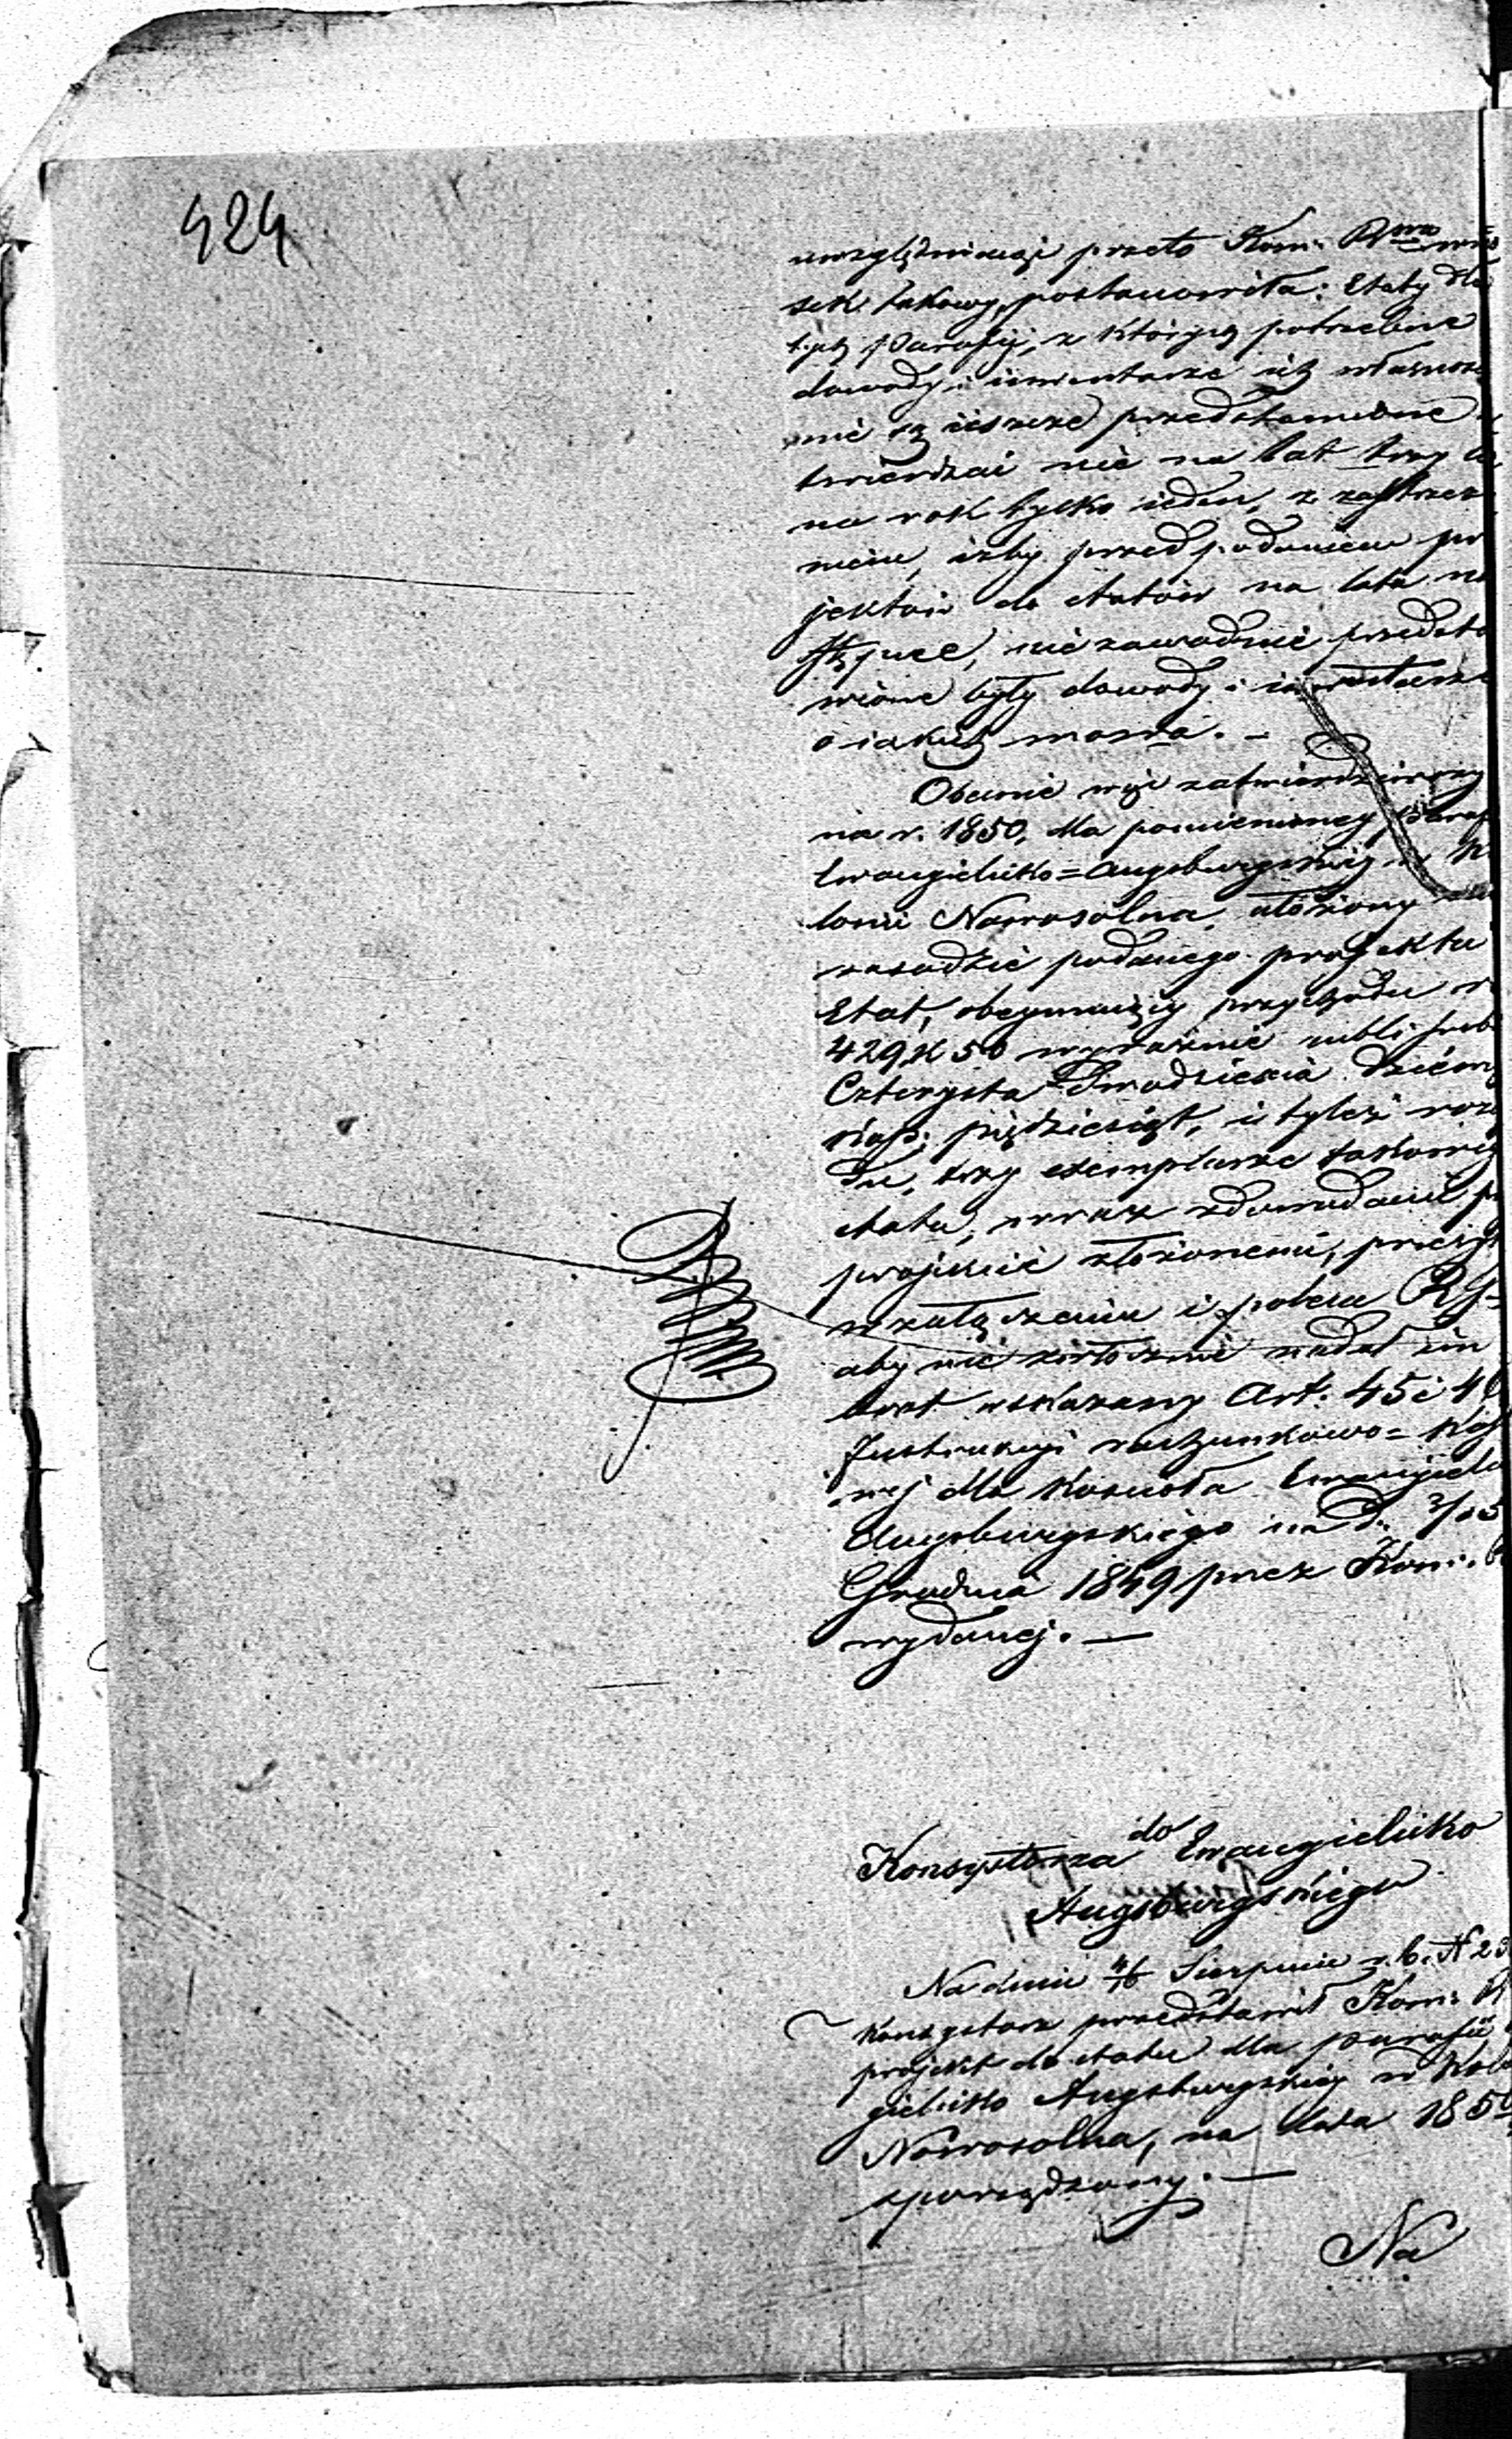 424
uwzględniając przeto Kom: R
sek takowy, postanowiła: Etaty dla
tych Parafij, z których potrzebne
dowody i inwentarze ich własnoś
nie są ieszcze przedstawione
twierdzać nie na lat trzy le
na rok tylko ieden, z zastrzeże
niem, iżby przed podaniem pro
jektów do etatów na lata na
stępne, niezawodnie przedsta
wione były dowody i inwentarze
o iakich mowa. —
Obecnie więc zatwierdziwszy
na r. 1850, dla pomienioney Paraf
Ewangielicko=Augsburgskiej w Ko
lonii Nowosolna, ułożony na
zasadzie podanego projektu
Etat, obeymuiący przychodu r
429 k 50 wyraźnie rubli sreb
Czterysta Dwadzieścia Dziewię
kop: pięćdziesiąt, i tyleż rozcho
du, trzy exemplarze takowego
etatu, wraz z dowodami p
projekcie złożonemi, przesyła
w załączeniu i poleca
aby niezwłocznie nadał im
wskazany Art. 45 i 4
Instrukcyi rachunkowo=Kas
wej dla Kościoła Ewangielic
Augsburgskiego na d. 3/15
Grudnia 1849 przez Kom:
wydanej. —
do
Konsystorza Ewangielicko
Augsburgskiego
Na dniu 4/16 Sierpnia r. b. N 23
Konsystorz przedstawił Kom: R
projekt do etatu dla parafii
gielicko Augsburgskiej w Kolo
Nowosolna, na lata 185
sporządzony. —
Na